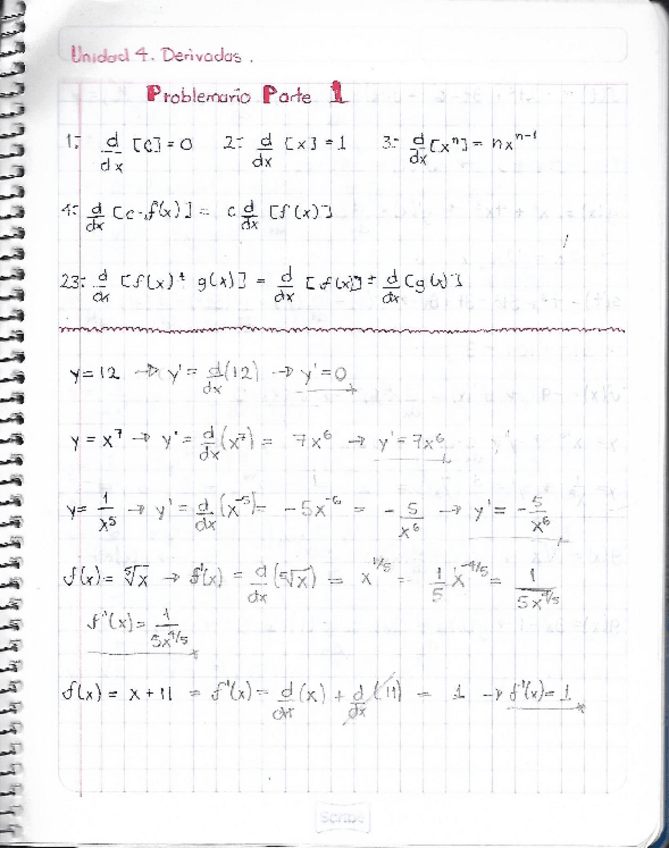 Unidad 4. Derivadas.
Problemario Parte 1
1: d/dx [c] = 0 2: d/dx [x] = 1 3: d/dx [xⁿ] = nxⁿ⁻¹
4: d/dx [c·f(x)] = c d/dx [f(x)]
23: d/dx [f(x) ± g(x)] = d/dx [f(x)] ± d/dx [g(x)]
y = 12 → y' = d/dx (12) → y' = 0
y = x⁷ → y' = d/dx (x⁷) = 7x⁶ → y' = 7x⁶
y = 1/x⁵ → y' = d/dx (x⁻⁵) = -5x⁻⁶ = -5/x⁶ → y' = -5/x⁶
f(x) = ⁵√x → f'(x) = d/dx (⁵√x) = x^1/5 = 1/5 x^-4/5 = 1/5x^4/5
f'(x) = 1/5x^4/5
f(x) = x + 11 = f'(x) = d/dx (x) + d/dx (11) = 1 → f'(x) = 1
Scribe